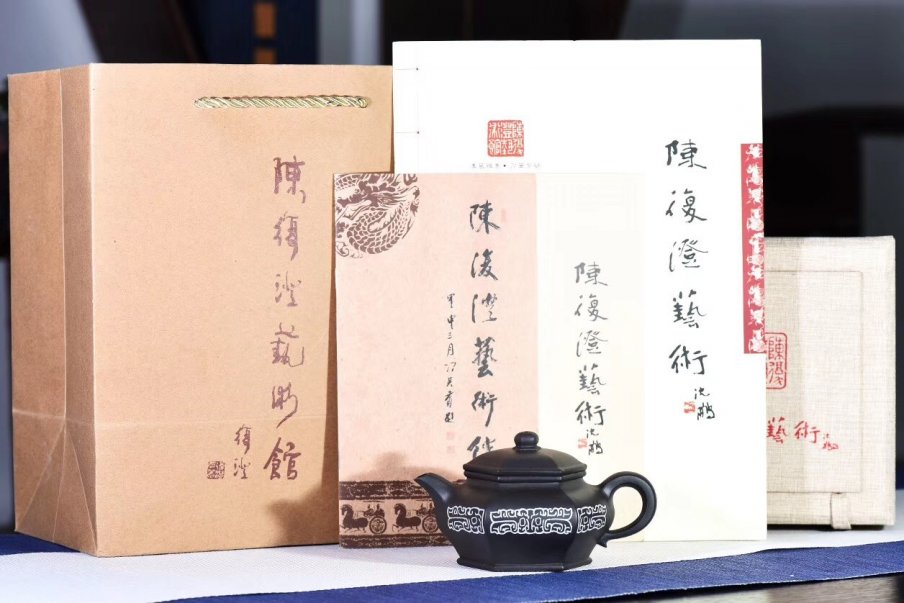 陳復澄藝術館
復澄
陳復澄藝術館
甲申三月
陳復澄藝術
沈鵬
陳復澄藝術
沈鵬
陳復
藝術